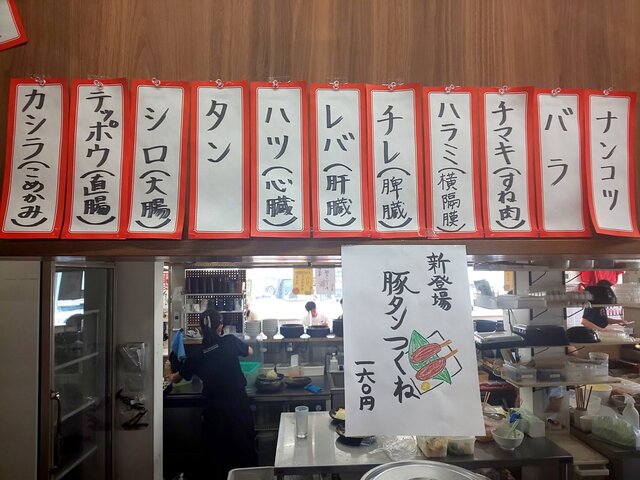 ナンコツ
バラ
チマキ(すね肉)
ハラミ(横隔膜)
チレ(脾臓)
レバ(肝臓)
ハツ(心臓)
タン
シロ(大腸)
テッポウ(直腸)
カシラ(こめかみ)
新登場
豚タンつくね
一六〇円